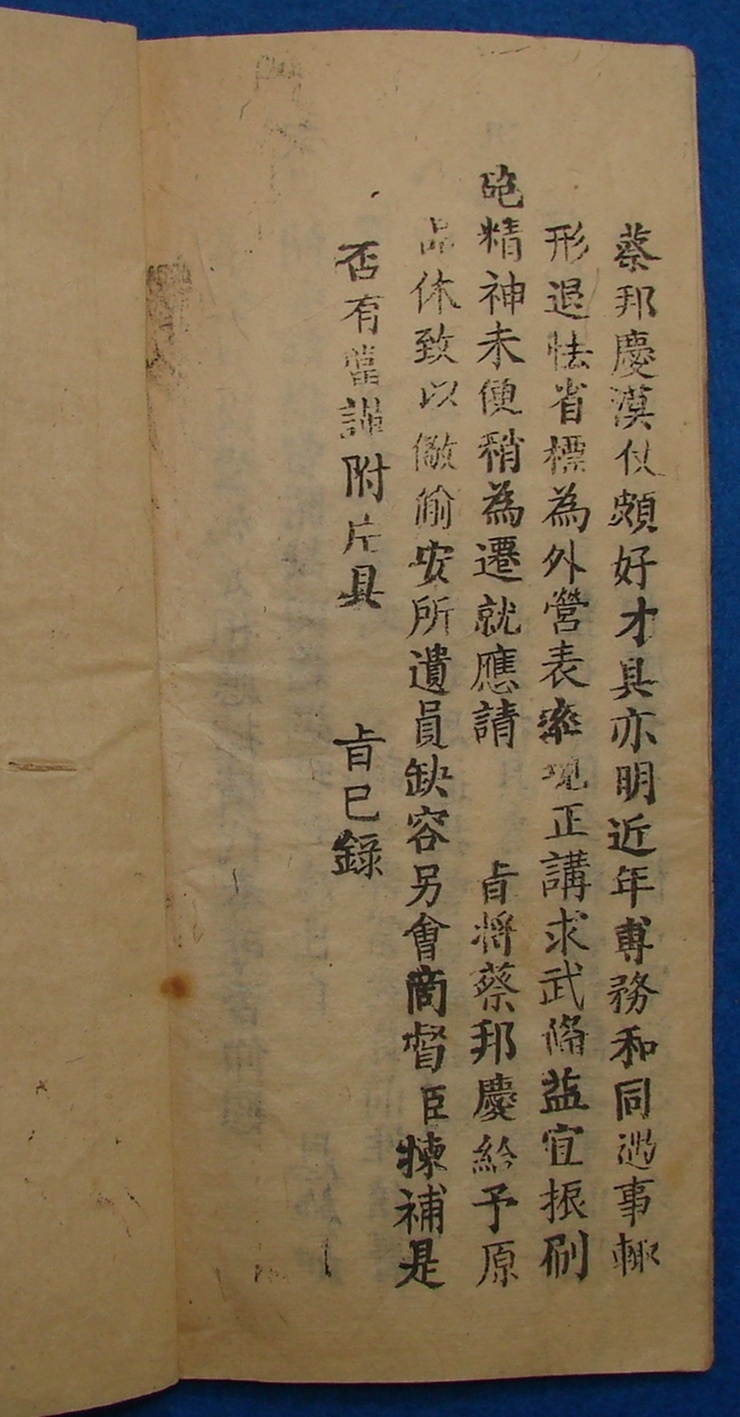 蔡邦慶漢仗頗好才具亦明近年專務和同遇事輙
形退怯省標為外營表率現正講求武俻益宜振刷
砲精神未便稍為遷就應請　旨將蔡邦慶給予原
品休致以儆偷安所遺員缺容另會商督臣揀補是
否有當謹附片具　旨已錄